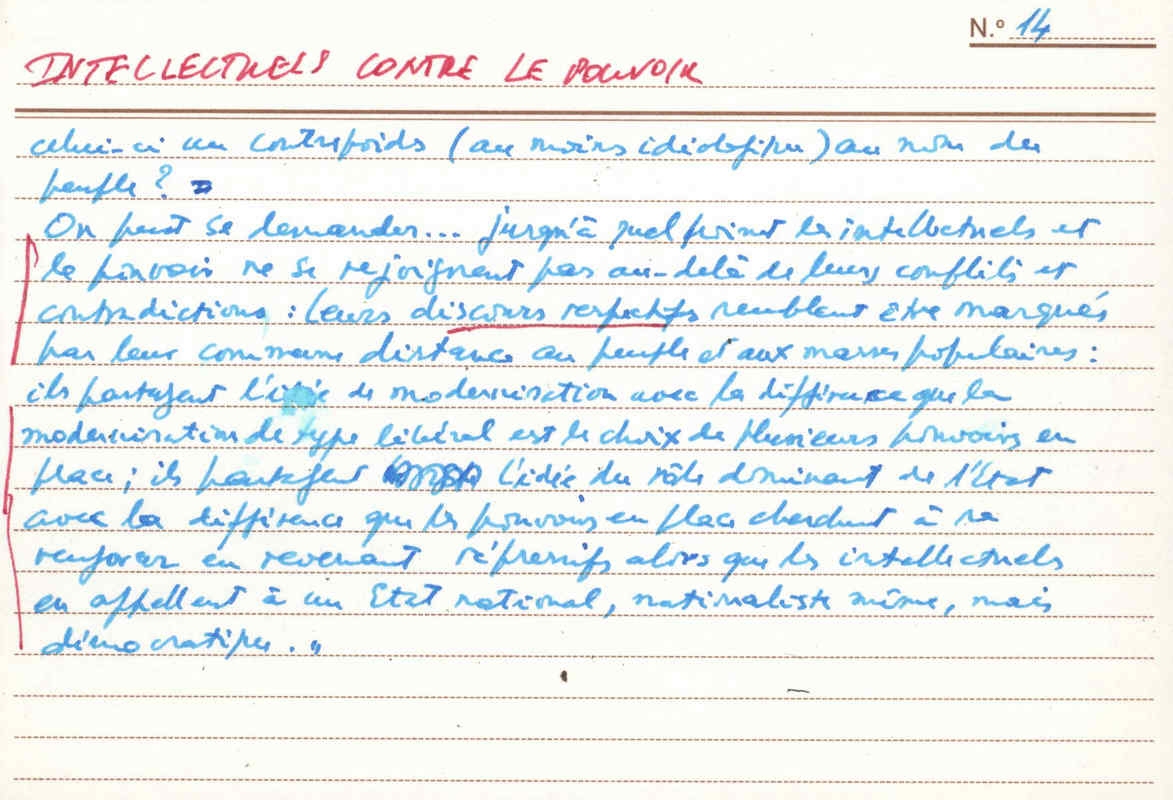 N.º 14
INTELLECTUELS CONTRE LE POUVOIR
celui-ci un contrepoids (au moins idéologique) au nom du
peuple ?
On peut se demander... jusqu'à quel point les intellectuels et
le pouvoir ne se rejoignent pas au-delà de leurs conflits et
contradictions : leurs discours respectifs semblent être marqués
par leur commune distance au peuple et aux masses populaires :
ils partagent l'idée de modernisation avec la différence que la
modernisation de type libéral est le choix de plusieurs pouvoirs en
place ; ils partagent l'idée du rôle dominant de l'Etat
avec la différence que les pouvoirs en place cherchent à se
renforcer en devenant répressifs alors que les intellectuels
en appellent à un Etat national, nationaliste même, mais
démocratique. "